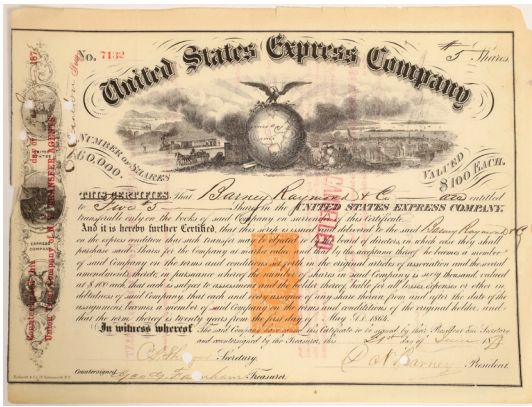 No. 7132
#5 Shares
United States Express Company
NUMBER OF SHARES
60,000.
VALUED
$100 EACH.
THIS CERTIFIES, That Barney Raymond & Co are entitled
to Five 5 Shares in the UNITED STATES EXPRESS COMPANY,
transferable only on the books of said Company on surrender of this Certificate.
And it is hereby further Certified, that this scrip is issued and delivered to the said Barney Raymond & Co
on the express condition that such transfer may be objected to by the board of directors, in which case they shall
purchase said Shares for the Company at market value and that by the assignment thereof he become a member
of said Company on the terms and conditions set forth in the original articles of association and the several
amendments thereto; in pursuance whereof the number of shares in said Company is sixty thousand valued
at $100 each, that each is subject to assessment and the holder thereof liable for all losses, expenses or other in
debtedness of said Company, that each and every assignee of any share therein from and after the date of the
assignment become a member of said Company on the terms and conditions of the original holder, and
that the term thereof is twenty years from the first day of May A.D. 1863.
In witness whereof The said Company have caused this Certificate to be signed by their President and Secretary
and countersigned by the Treasurer, this day of June
Secretary.
D N Barney President
Countersigned Treasurer.
187
day of
TRANSFER AGENTS